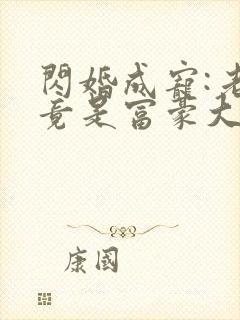 閃婚成寵:老
竟是富豪大
康國